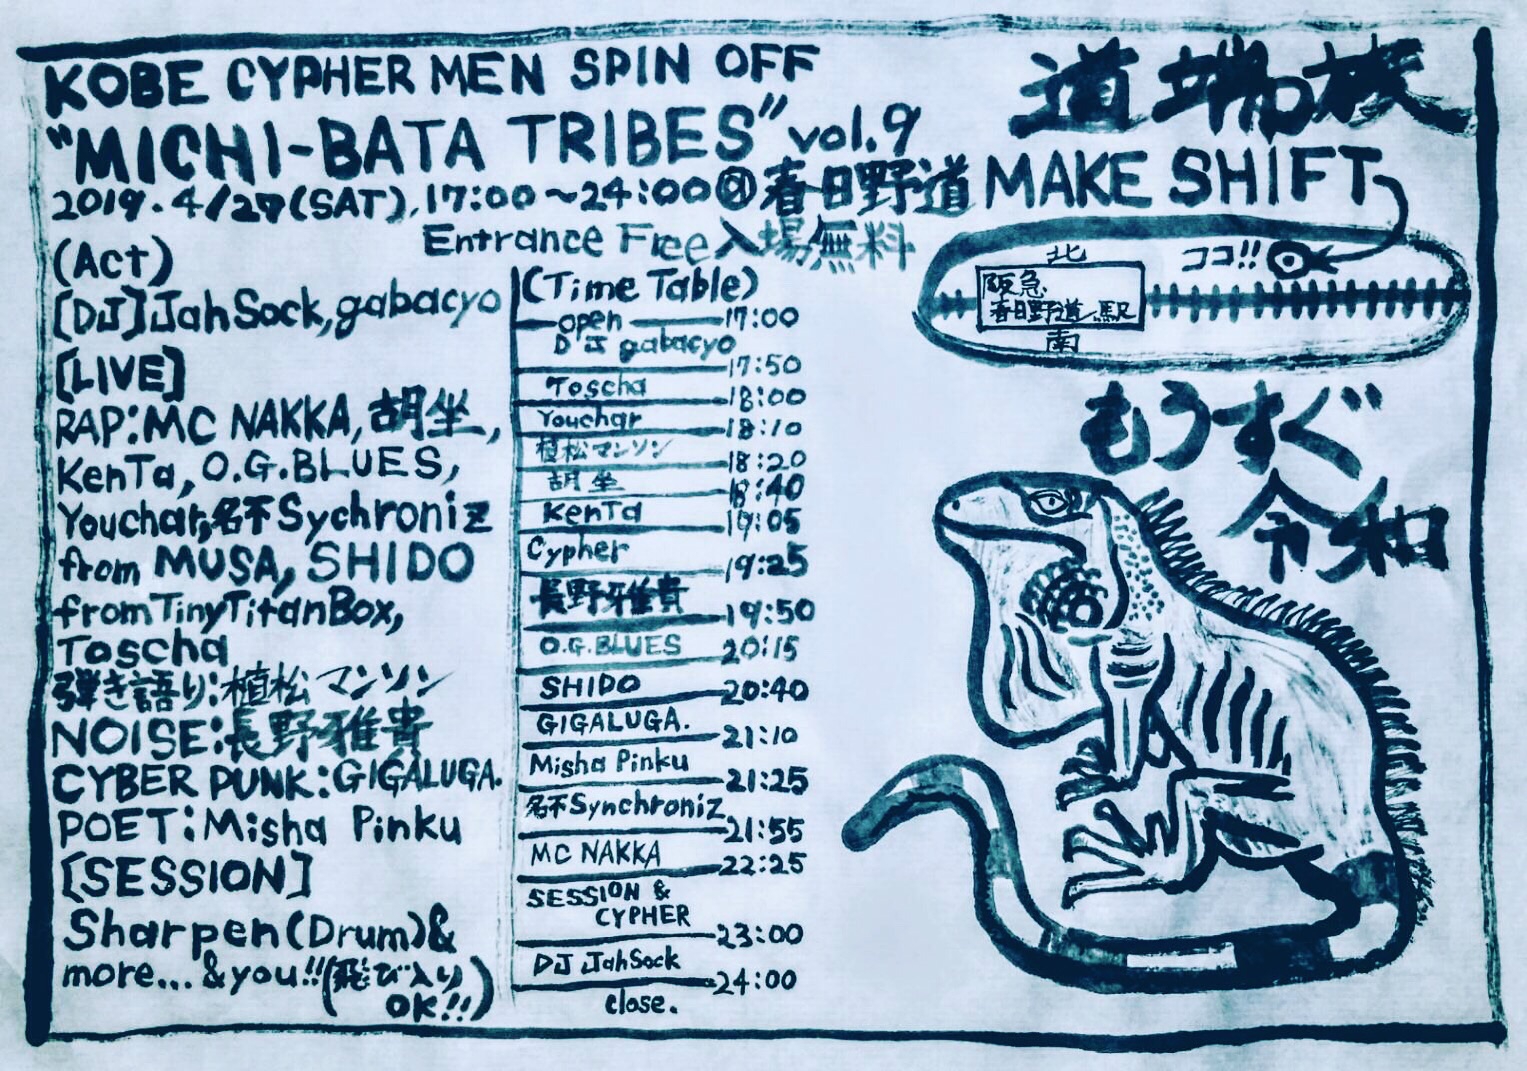 KOBE CYPHER MEN SPIN OFF
"MICHI-BATA TRIBES" vol.9
2019.4/27(SAT).17:00~24:00@春日野道 MAKE SHIFT
Entrance Free 入場無料
道端族
(Act)
[DJ]JahSock,gabacyo
[LIVE]
RAP:MC NAKKA,胡坐,
KenTa,O.G.BLUES,
Youchar,名不Sychroniz
from MUSA,SHIDO
fromTinyTitanBox,
Toscha
弾き語り:植松マンソン
NOISE:長野雅貴
CYBER PUNK:GIGALUGA.
POET:Misha Pinku
[SESSION]
Sharpen(Drum)&
more...&you!!(飛び入り
OK!!)
(Time Table)
open 17:00
DJ gabacyo
17:50
Toscha
18:00
Youchar
18:10
植松マンソン
18:20
胡坐
18:40
KenTa
19:05
Cypher
19:25
長野雅貴
19:50
O.G.BLUES
20:15
SHIDO
20:40
GIGALUGA.
21:10
Misha Pinku
21:25
名不Synchroniz
21:55
MC NAKKA
22:25
SESSION &
CYPHER
23:00
DJ JahSock
24:00
close.
北
ココ!!
阪急
春日野道駅
南
もうすぐ
令和